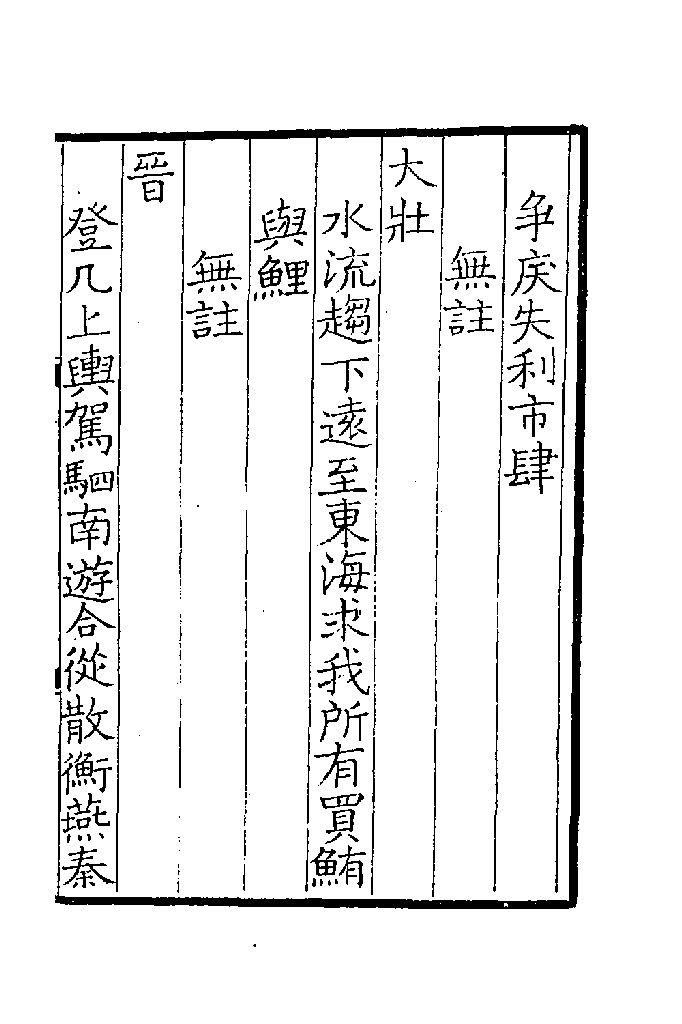 争戾失利市肆
無註
大壯
水流趨下遠至東海求我所有買鮪
與鯉
無註
晉
登几上輿駕駟南遊合從散衡燕秦